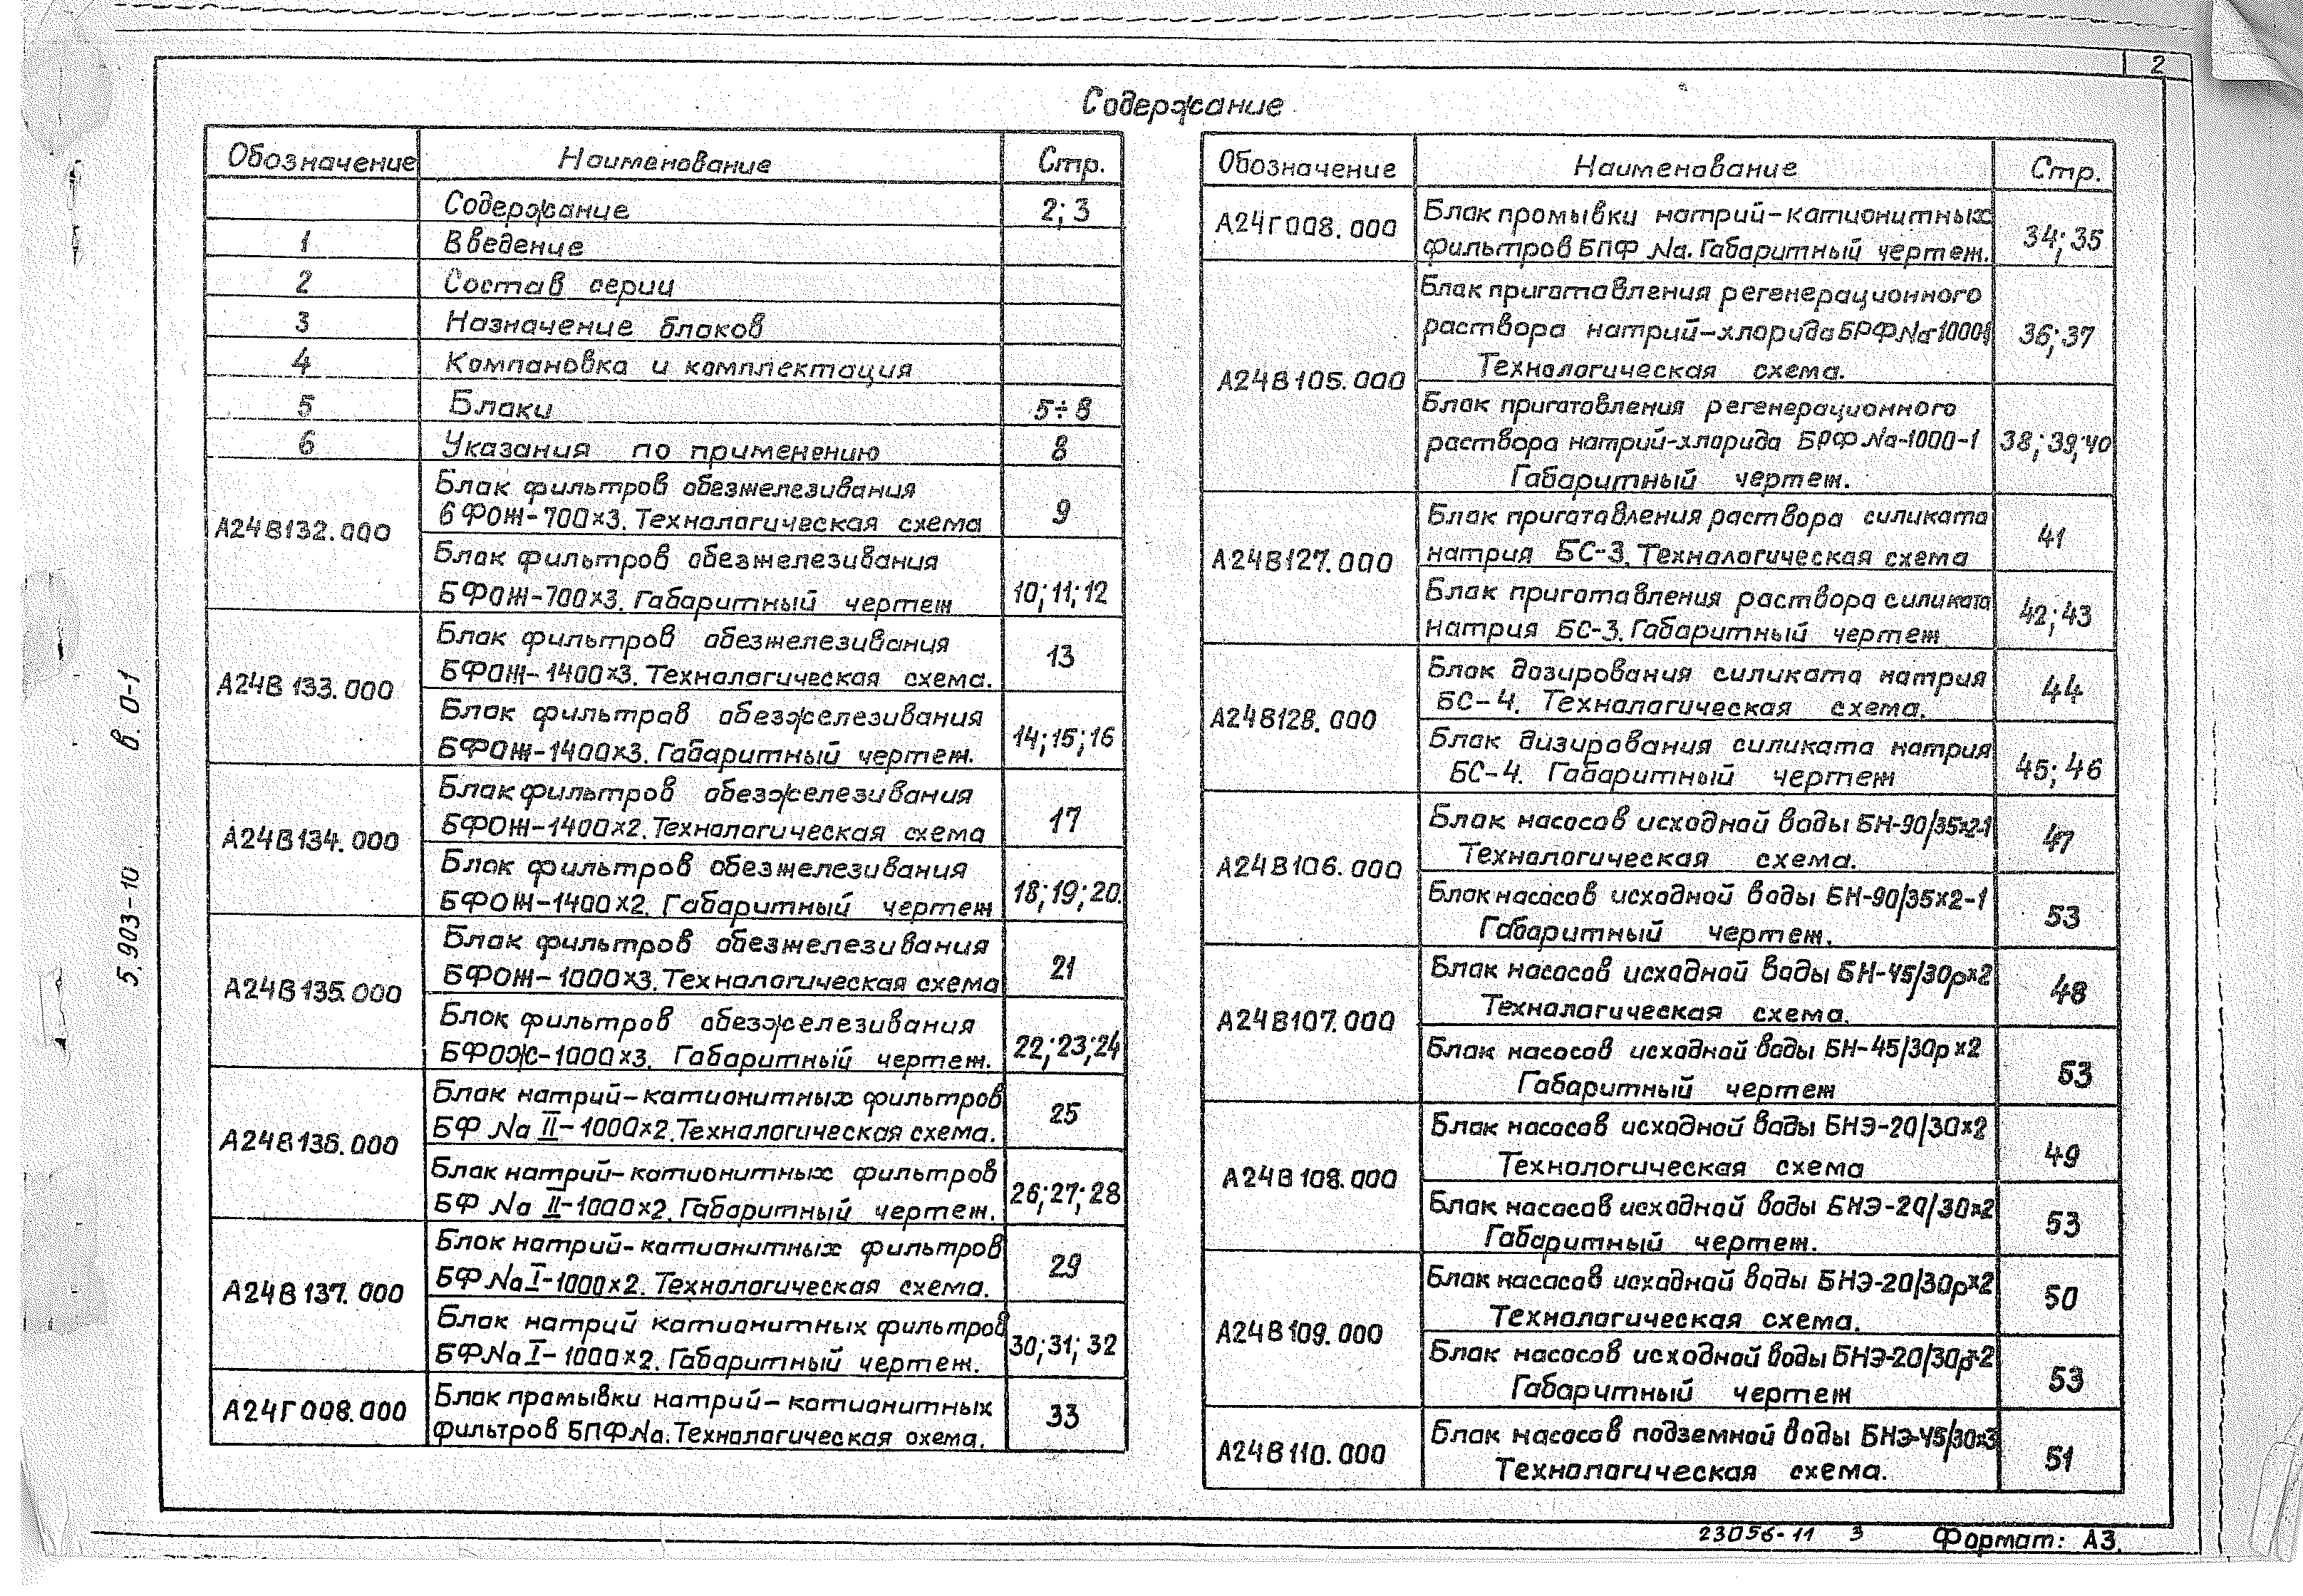 2
Содержание
Обозначение Наименование Стр.
Содержание 2; 3
1 Введение
2 Состав серии
3 Назначение блоков
4 Компановка и комплектация
5 Блоки 5÷8
6 Указания по применению 8
А24В132.000
Блок фильтров обезжелезивания
БФОЖ-700×3. Технологическая схема 9
Блок фильтров обезжелезивания
БФОЖ-700×3. Габаритный чертеж 10; 11; 12
А24В133.000
Блок фильтров обезжелезивания
БФОЖ-1400×3. Технологическая схема. 13
Блок фильтров обезжелезивания
БФОЖ-1400×3. Габаритный чертеж. 14; 15; 16
А24В134.000
Блок фильтров обезжелезивания
БФОЖ-1400×2. Технологическая схема 17
Блок фильтров обезжелезивания
БФОЖ-1400×2. Габаритный чертеж 18; 19; 20.
А24В135.000
Блок фильтров обезжелезивания
БФОЖ-1000×3. Технологическая схема 21
Блок фильтров обезжелезивания
БФОЖ-1000×3. Габаритный чертеж. 22; 23; 24
А24В136.000
Блок натрий-катионитных фильтров
БФ Na II-1000×2. Технологическая схема. 25
Блок натрий-катионитных фильтров
БФ Na II-1000×2. Габаритный чертеж. 26; 27; 28
А24В137.000
Блок натрий-катионитных фильтров
БФ Na I-1000×2. Технологическая схема. 29
Блок натрий катионитных фильтров
БФ Na I-1000×2. Габаритный чертеж. 30; 31; 32
А24Г008.000
Блок промывки натрий-катионитных
фильтров БПФNa. Технологическая схема. 33
Обозначение Наименование Стр.
А24Г008.000
Блок промывки натрий-катионитных
фильтров БПФ Na. Габаритный чертеж. 34; 35
А24В105.000
Блок приготовления регенерационного
раствора натрий-хлорида БРФNa-1000-1
Технологическая схема. 36; 37
Блок приготовления регенерационного
раствора натрий-хлорида БРФ Na-1000-1
Габаритный чертеж. 38; 39; 40
А24В127.000
Блок приготовления раствора силиката
натрия БС-3. Технологическая схема 41
Блок приготовления раствора силиката
натрия БС-3. Габаритный чертеж 42; 43
А24В128.000
Блок дозирования силиката натрия
БС-4. Технологическая схема. 44
Блок дизирования силиката натрия
БС-4. Габаритный чертеж 45; 46
А24В106.000
Блок насосов исходной воды БН-90/35×2-1
Технологическая схема. 47
Блок насосов исходной воды БН-90/35×2-1
Габаритный чертеж. 53
А24В107.000
Блок насосов исходной воды БН-45/30р×2
Технологическая схема. 48
Блок насосов исходной воды БН-45/30р×2
Габаритный чертеж 53
А24В108.000
Блок насосов исходной воды БНЭ-20/30×2
Технологическая схема 49
Блок насосов исходной воды БНЭ-20/30×2
Габаритный чертеж. 53
А24В109.000
Блок насосов исходной воды БНЭ-20/30р×2
Технологическая схема. 50
Блок насосов исходной воды БНЭ-20/30р×2
Габаритный чертеж 53
А24В110.000
Блок насосов подземной воды БНЭ-45/30×3
Технологическая схема. 51
5.903-10 в. 0-1
23056-11 3 Формат: А3.